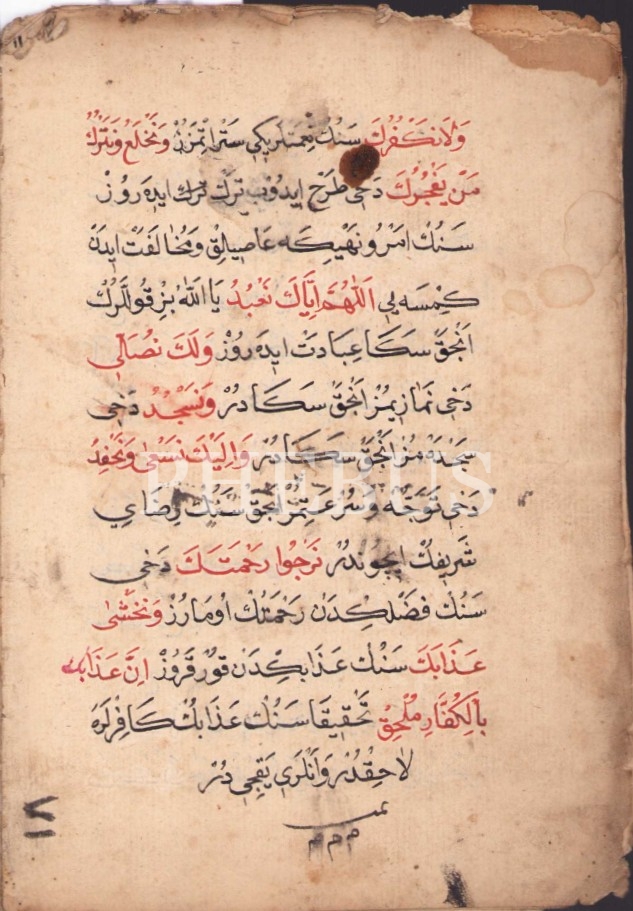 ١١
وَلاَ نَكْفُرُكَ سَنُكْ نِعْمَتْلَرِيكِي سَتْر اِتْمَزُزْ وَنَخْلَعُ وَنَتْرُكُ
مَنْ يَفْجُرُكَ دَخِي طَرْح اِيدُوبْ تَرْكْ تَرْكْ ايدَه رُوزْ
سَنُكْ اَمْر و نَهْيِكَه عَاصِيلِقْ وَمُخَالَفَتْ ايدَنْ
كِمْسَه يِي اَللّٰهُمَّ اِيَّاكَ نَعْبُدُ يَا اَللّٰهُ بِزْ قُولْلَرُكْ
اَنْجَقْ سَكَا عِبَادَتْ ايدَه رُوزْ وَلَكَ نُصَلِّي
دَخِي نَمَازِيمُزْ اَنْجَقْ سَكَادُرْ وَنَسْجُدُ دَخِي
سَجْدَه مُزْ اَنْجَقْ سَكَادُرْ وَاِلَيْكَ نَسْعٰى وَنَحْفِدُ
دَخِي تَوَجُّه وَسُرْعَتِمُزْ اَنْجَقْ سَنُكْ رِضَايِ
شَرِيفُكْ اِيچُونْدُرْ نَرْجُوا رَحْمَتَكَ دَخِي
سَنُكْ فَضْلُكْدَنْ رَحْمَتُكْ اُومَارُزْ وَنَخْشٰى
عَذَابَكَ سَنُكْ عَذَابِكْدَنْ قُورْقَرُوزْ اِنَّ عَذَابَكَ
بِالْكُفَّارِ مُلْحِقْ تَحْقِيقَا سَنُكْ عَذَابُكْ كَافِرْلَرَه
لاَحِقْدُرْ وَاَنْلَرِي يَقِجِي دُرْ
تمت
م م م
PHEBUS